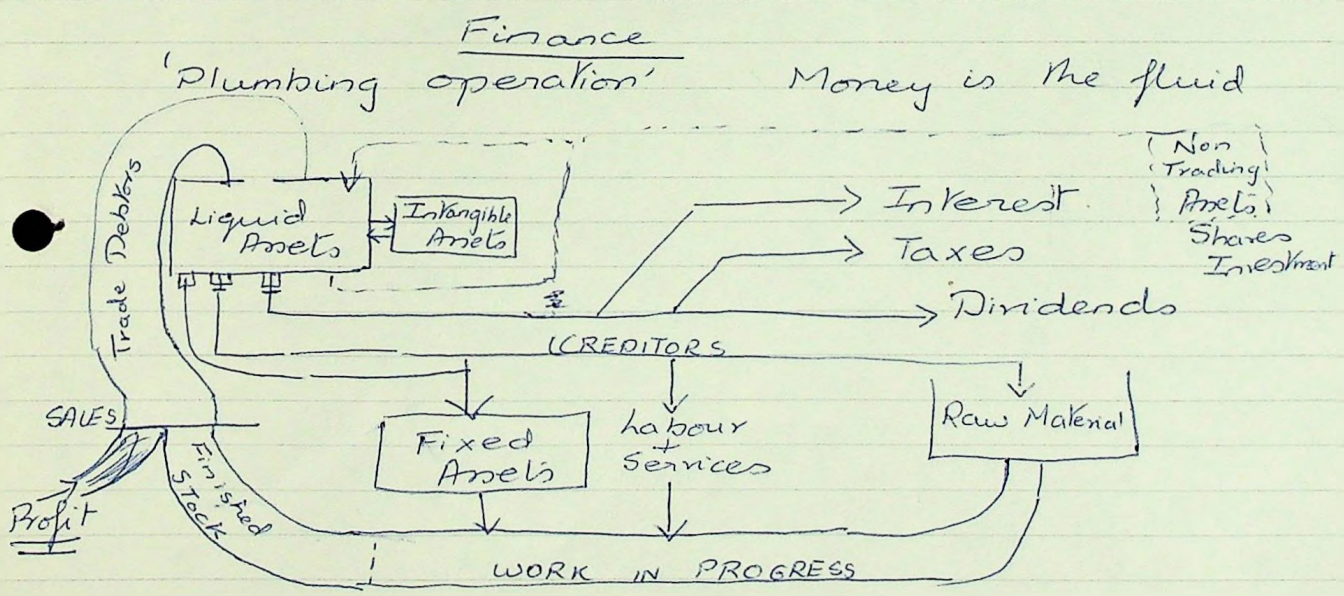 Finance
'Plumbing operation' Money is the fluid
Non
Trading
Assets
Shares
Investment
Trade Debtors
Liquid
Assets
Intangible
Assets
Interest.
Taxes
Dividends
(CREDITORS
SALES
Fixed
Assets
Labour
+
Services
Raw Material
Finished
Stock
Profit
WORK IN PROGRESS